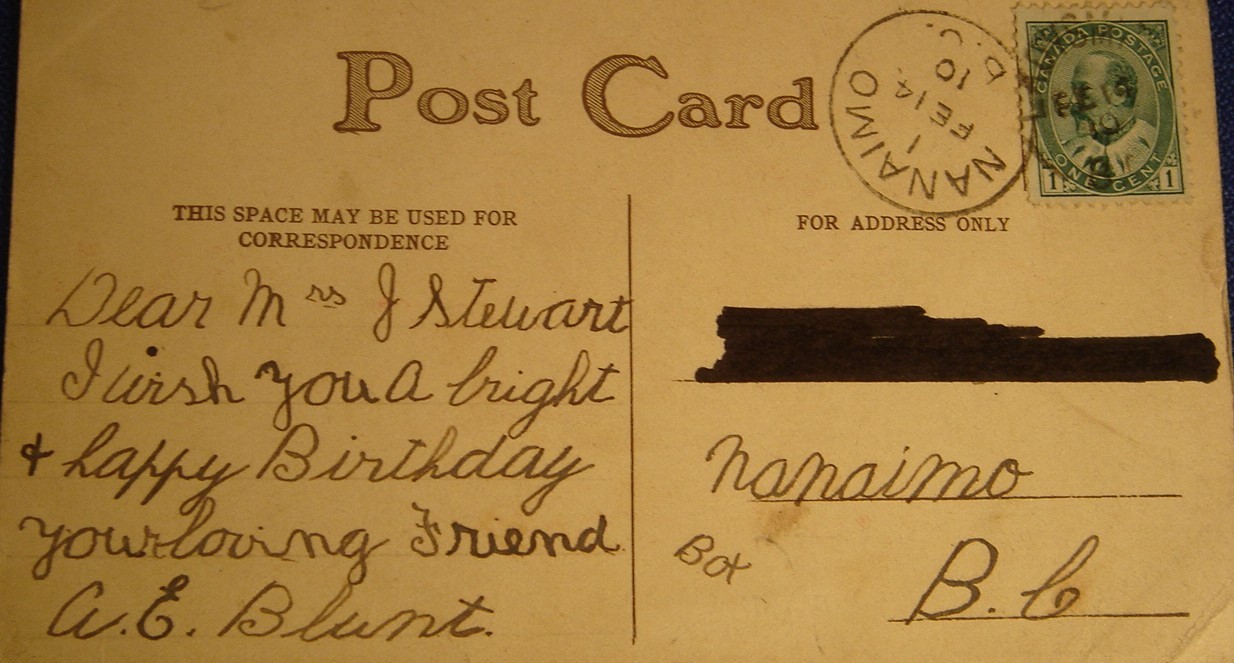 Post Card
NANAIMO
1
FE 14
10
B.C.
CANADA POSTAGE
ONE CENT
1 1
THIS SPACE MAY BE USED FOR
CORRESPONDENCE
FOR ADDRESS ONLY
Dear Mrs J Stewart
I wish you a bright
& happy Birthday
your loving Friend
A.E. Blunt.
Nanaimo
Box
B.C